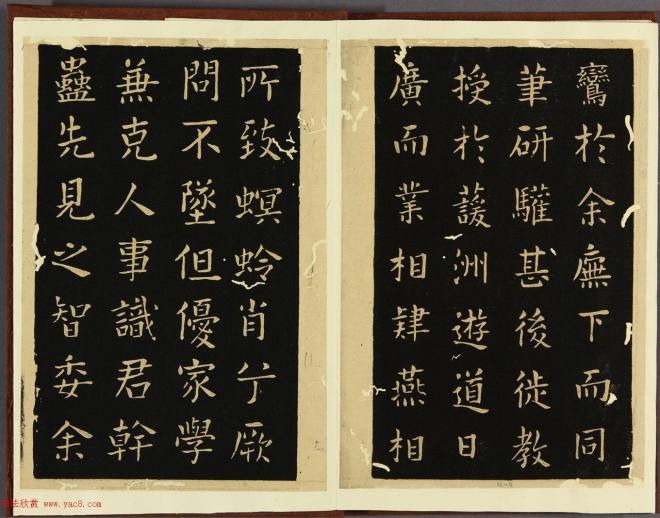 鸞於余廡下而同
筆研驩甚後徙教
授於䕶洲遊道日
廣而業相肄燕相
所致螟蛉肖兮厥
問不墜但優家學
兼克人事識君幹
蠱先見之智委余
书法欣赏 www.yac8.com